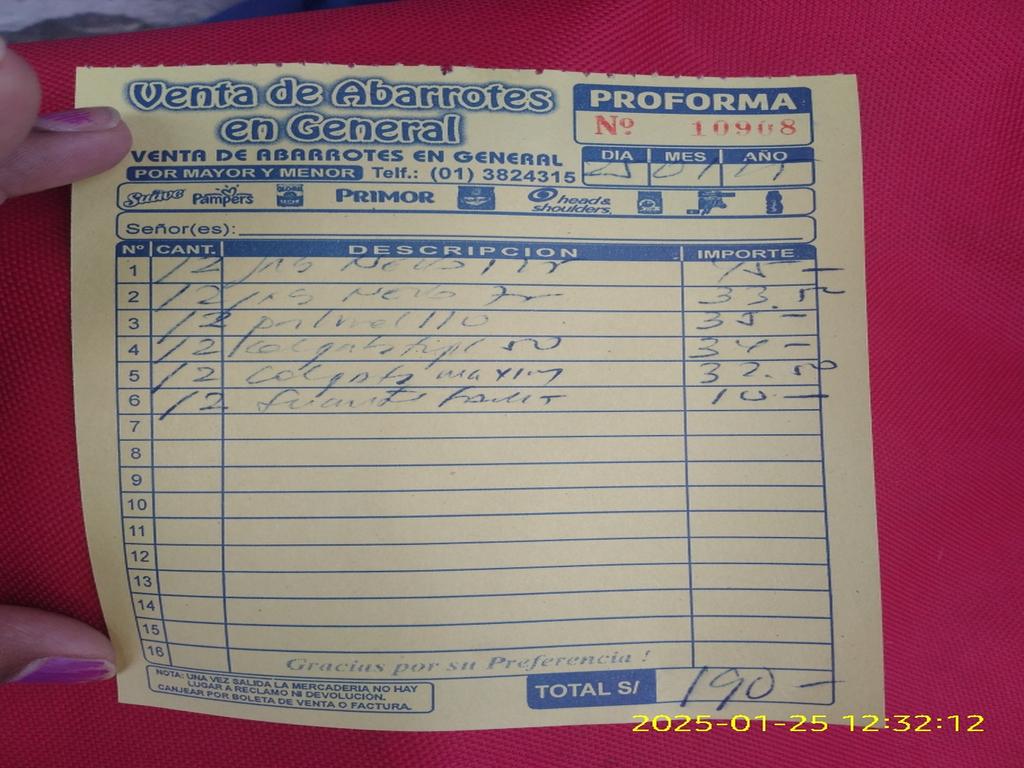 Venta de Abarrotes
en General
VENTA DE ABARROTES EN GENERAL
POR MAYOR Y MENOR Telf.: (01) 3824315
PROFORMA
Nº 10908
DIA MES AÑO
25 01
Suave Pampers PRIMOR head & shoulders
Señor(es):
Nº CANT. DESCRIPCION IMPORTE
1 12 45 -
2 12 33.50
3 12 35 -
4 12 50 34 -
5 12 32.50
6 12 10 -
7
8
9
10
11
12
13
14
15
16
Gracias por su Preferencia !
NOTA: UNA VEZ SALIDA LA MERCADERIA NO HAY
LUGAR A RECLAMO NI DEVOLUCIÓN.
CANJEAR POR BOLETA DE VENTA O FACTURA.
TOTAL S/ 190 -
2025-01-25 12:32:12